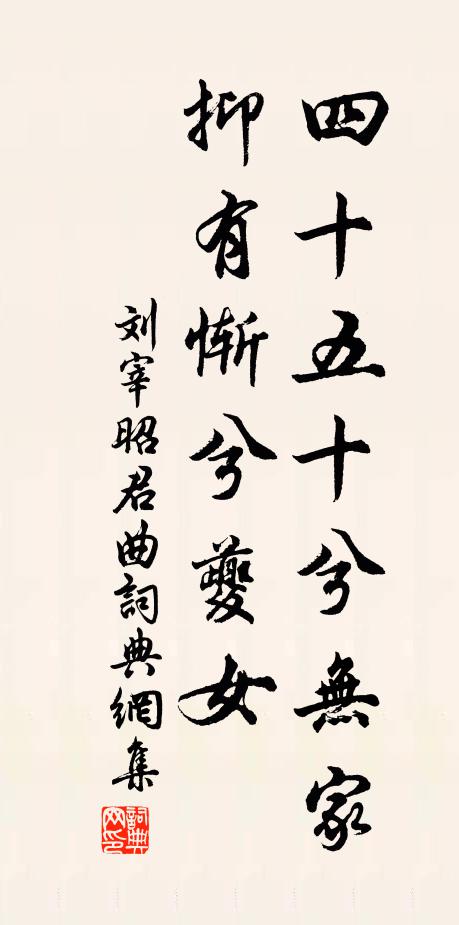 四十五十兮無家
抑有慚兮夔女
刘宰昭君曲詞典網集
詞典
网印